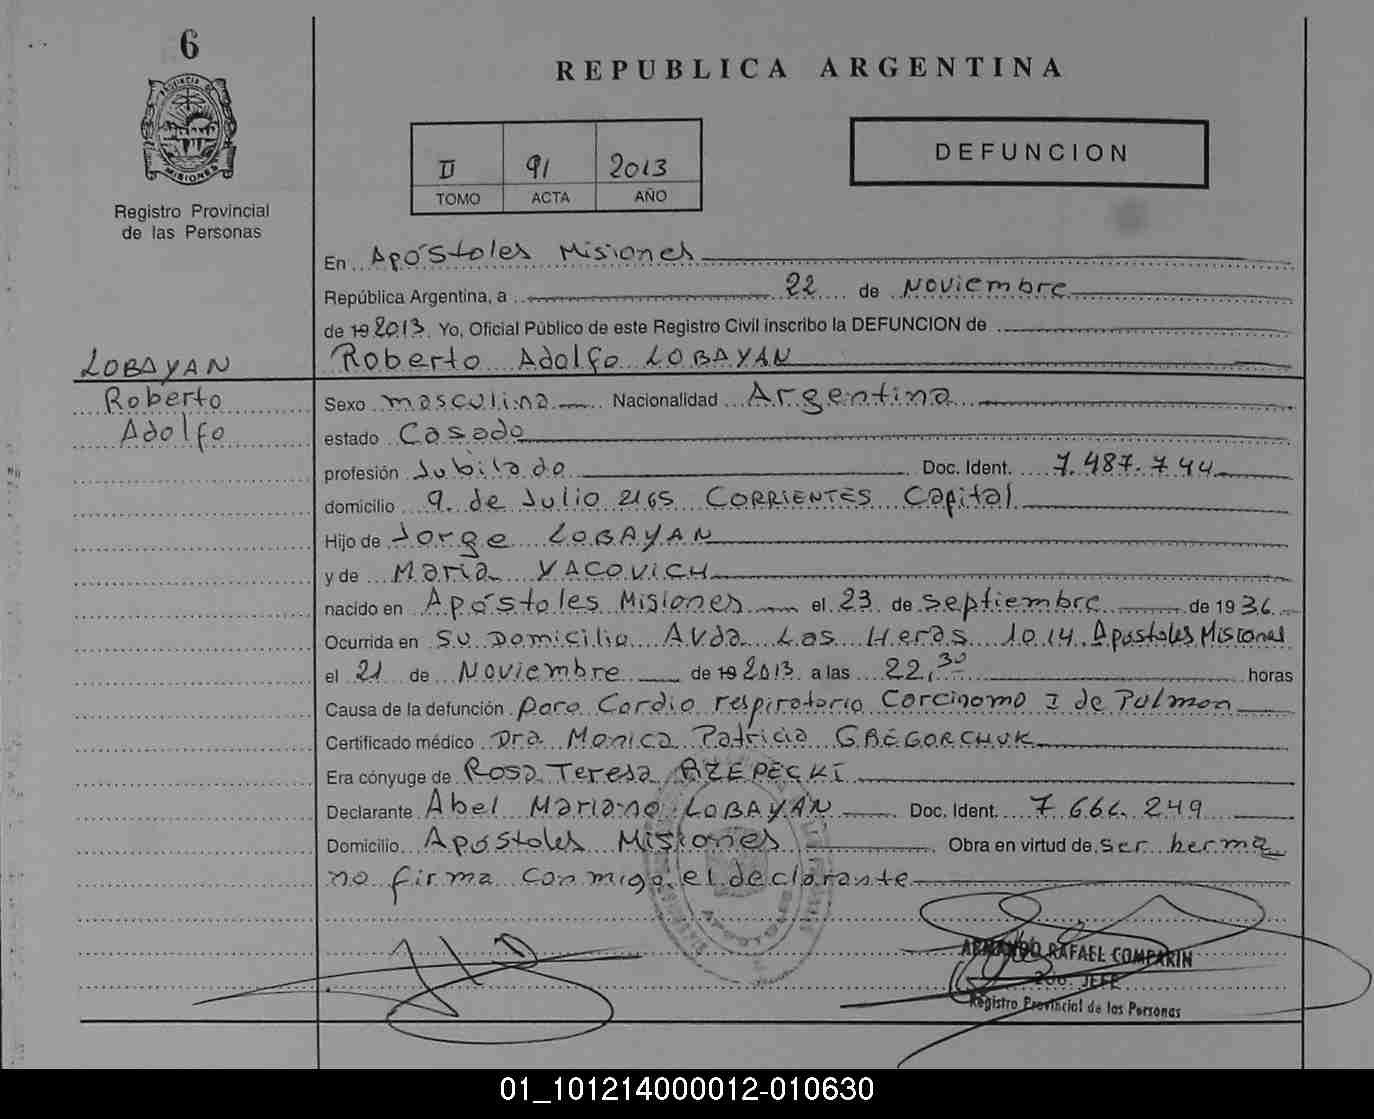 6
PROVINCIA DE
MISIONES
Registro Provincial
de las Personas
REPUBLICA ARGENTINA
II 91 2013
TOMO ACTA AÑO
DEFUNCION
En Apóstoles Misiones
República Argentina, a 22 de Noviembre
de 19 2013. Yo, Oficial Público de este Registro Civil inscribo la DEFUNCION de
LOBAYAN Roberto Adolfo LOBAYAN
Roberto
Adolfo
Sexo masculino Nacionalidad Argentina
estado Casado
profesión Jubilado Doc. Ident. 7.487.744
domicilio 9 de Julio 2165 CORRIENTES Capital
Hijo de Jorge LOBAYAN
y de Maria YACOVICH
nacido en Apóstoles Misiones el 23 de septiembre de 1936
Ocurrida en su Domicilio Avda Las Heras 1014 Apostoles Misiones
el 21 de Noviembre de 19 2013 a las 22,30 horas
Causa de la defunción paro Cardio respiratorio Carcinoma I de Pulmon
Certificado médico Dra Monica Patricia GREGORCHUK
Era cónyuge de Rosa Teresa RZEPECKI
Declarante Abel Mariano LOBAYÁN Doc. Ident. 7.666.249
Domicilio Apóstoles Misiones Obra en virtud de ser herma
no firma conmigo el declarante
APOSTOLES
ARMANDO RAFAEL COMPARIN
2do. JEFE
Registro Provincial de las Personas
01_101214000012-010630